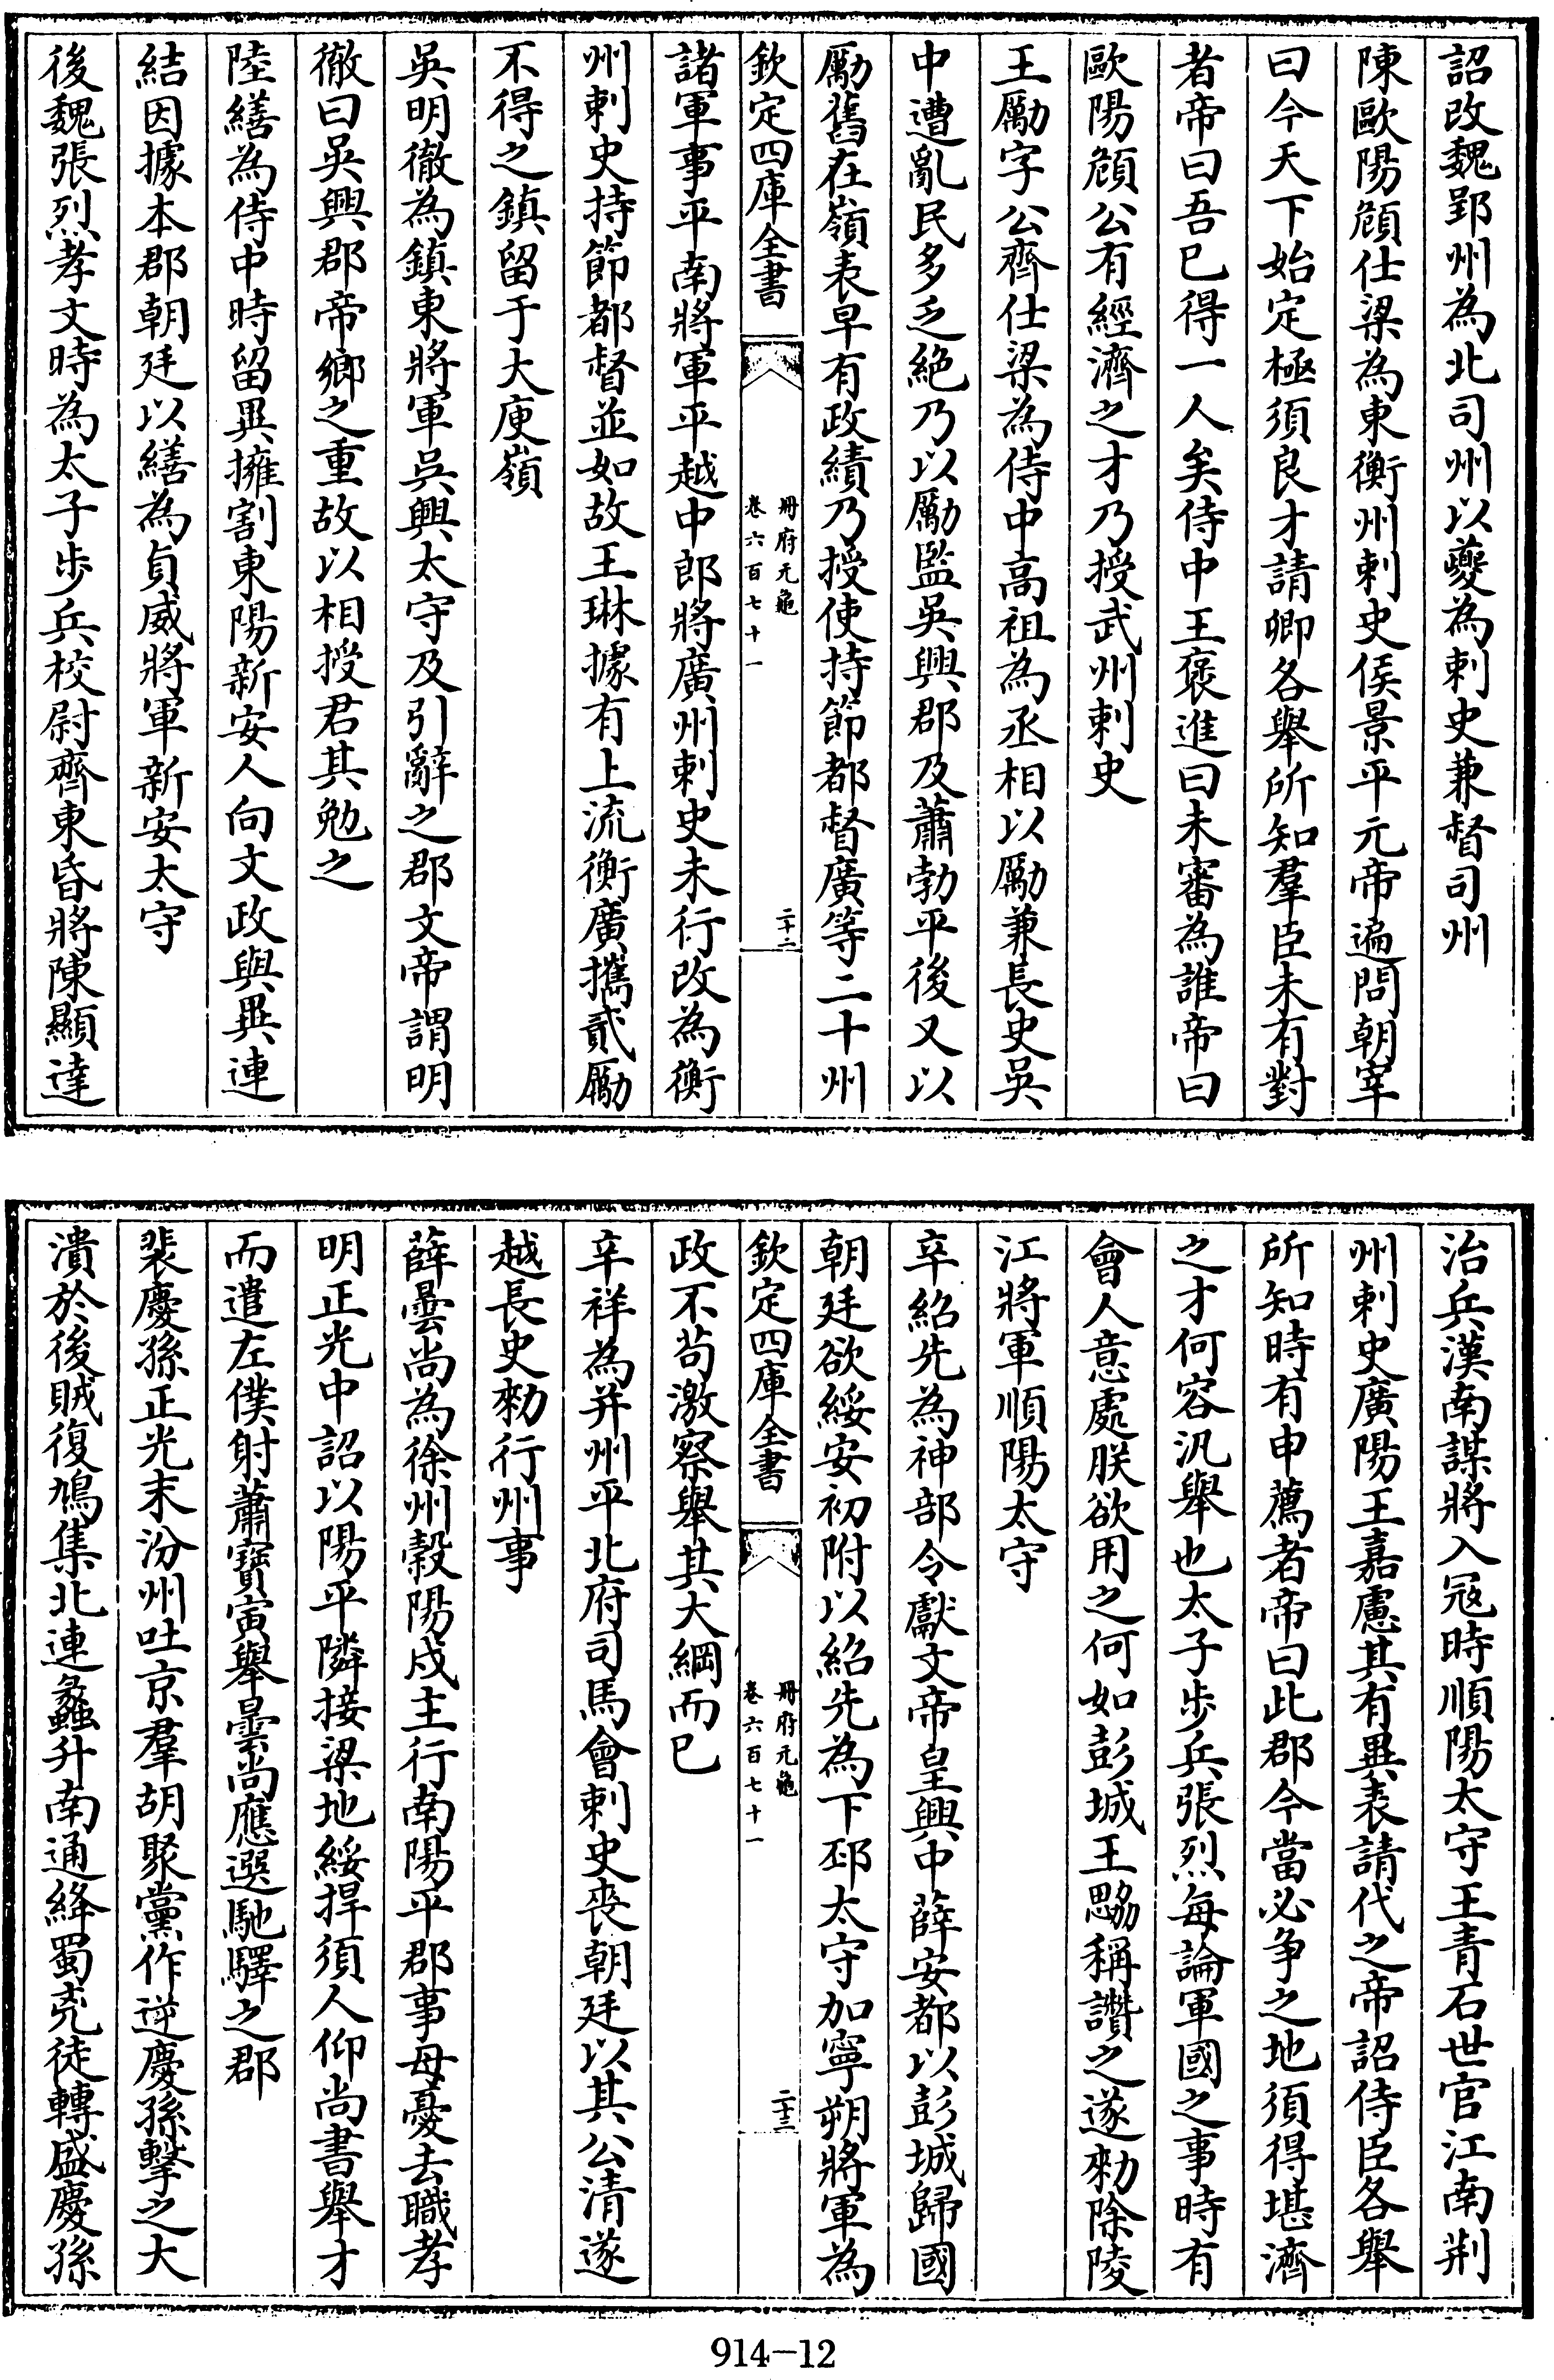 詔改魏郢州為北司州以夔為刺史兼督司州
陳歐陽頠仕梁為東衡州刺史侯景平元帝遍問朝宰
曰今天下始定極須良才請卿各舉所知羣臣未有對
者帝曰吾已得一人矣侍中王褒進曰未審為誰帝曰
歐陽頠公有經濟之才乃授武州刺史
王勵字公齊仕梁為侍中高祖為丞相以勵兼長史吳
中遭亂民多乏絶乃以勵監吳興郡及蕭勃平後又以
勵舊在嶺表早有政績乃授使持節都督廣等二十州
欽定四庫全書
冊府元龜
卷六百七十一
二十二
諸軍事平南將軍平越中郎將廣州刺史未行改為衡
州刺史持節都督並如故王琳據有上流衡廣攜貳勵
不得之鎮留于大庾嶺
吳明徹為鎮東將軍吳興太守及引辭之郡文帝謂明
徹曰吳興郡帝鄉之重故以相授君其勉之
陸繕為侍中時留異擁割東陽新安人向文政與異連
結因據本郡朝廷以繕為貞威將軍新安太守
後魏張烈孝文時為太子步兵校尉齊東昏將陳顯達
治兵漢南謀將入冦時順陽太守王青石世官江南荆
州刺史廣陽王嘉慮其有異表請代之帝詔侍臣各舉
所知時有申薦者帝曰此郡今當必争之地須得堪濟
之才何容汎舉也太子步兵張烈每論軍國之事時有
會人意處朕欲用之何如彭城王勰稱讚之遂勑除陵
江將軍順陽太守
辛紹先為神部令獻文帝皇興中薛安都以彭城歸國
朝廷欲綏安初附以紹先為下邳太守加寧朔將軍為
欽定四庫全書
冊府元龜
卷六百七十一
二十三
政不苟激察舉其大綱而已
辛祥為并州平北府司馬會刺史丧朝廷以其公清遂
越長史勑行州事
薛曇尚為徐州穀陽戍主行南陽平郡事母憂去職孝
明正光中詔以陽平隣接梁地綏捍須人仰尚書舉才
而遣左僕射蕭寶寅舉曇尚應選馳驛之郡
裴慶孫正光末汾州吐京羣胡聚黨作逆慶孫擊之大
潰於後賊復鳩集北連蠡升南通絳蜀兇徒轉盛慶孫
914-12